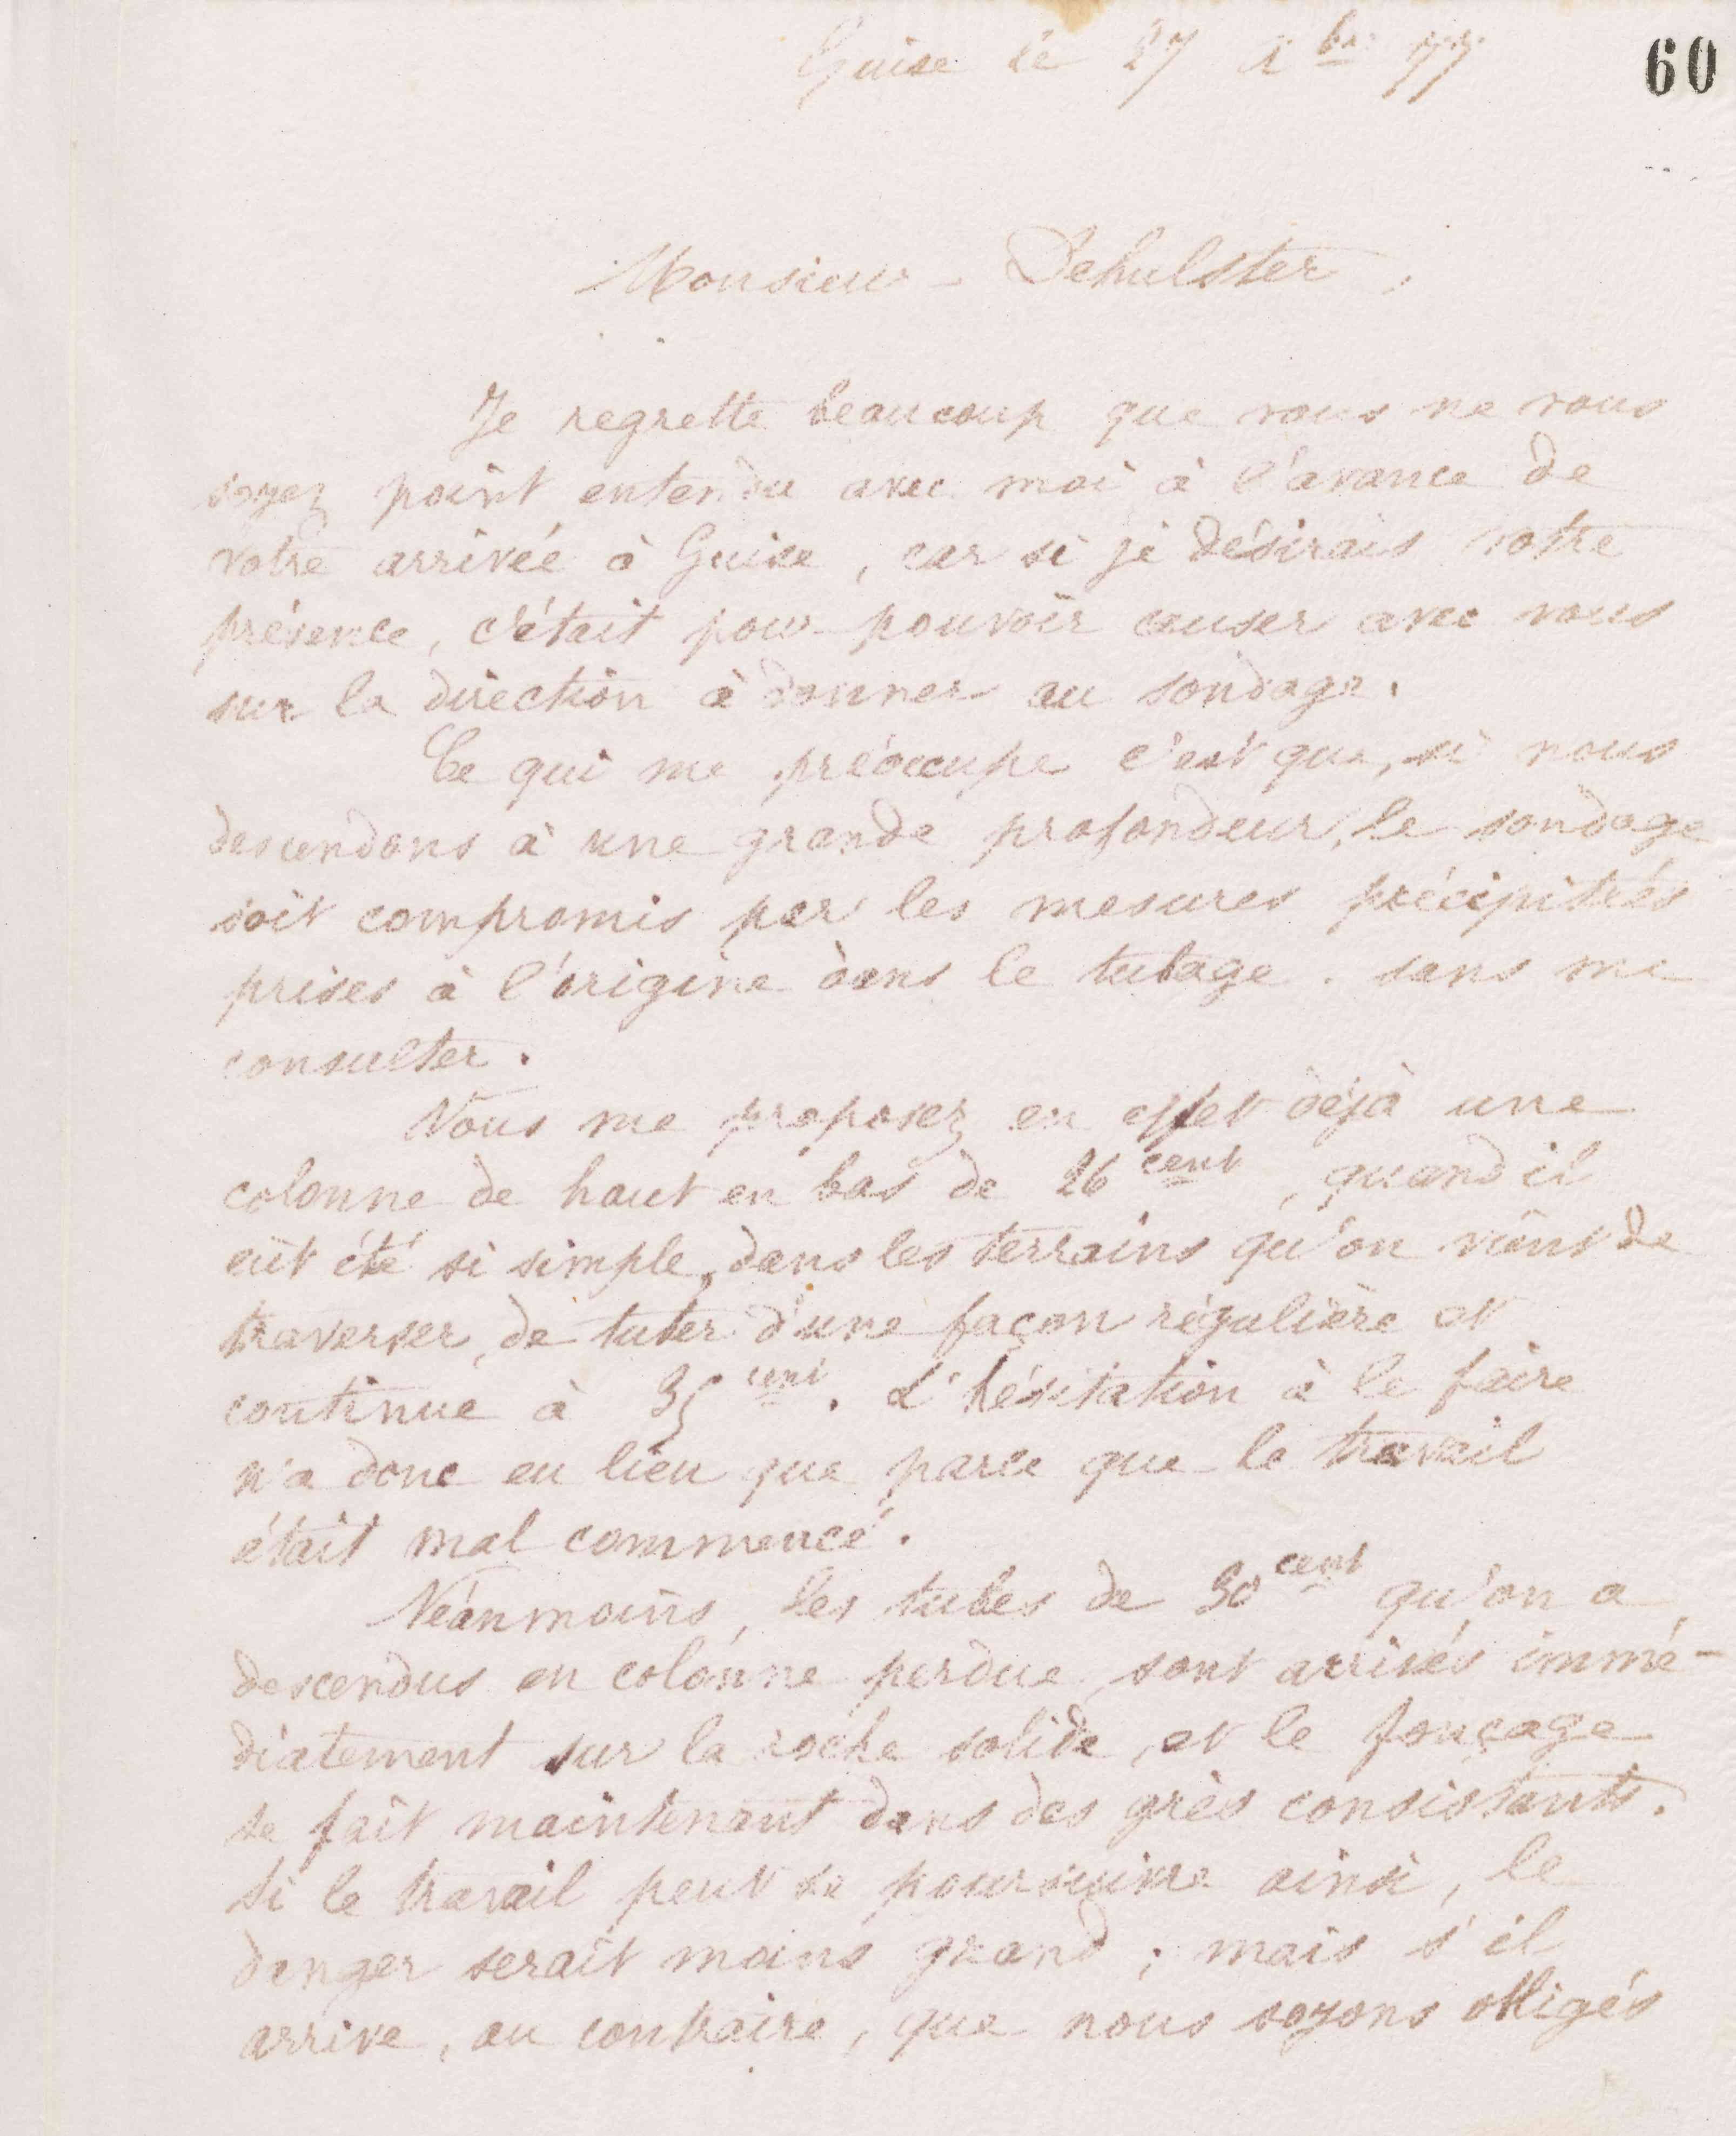 Guise le 27 Xbre 77
60
Monsieur Schulster,
Je regrette beaucoup que vous ne vous
soyez point entendu avec moi à l'avance de
votre arrivée à Guise, car si je désirais votre
présence, c'était pour pouvoir causer avec vous
sur la direction à donner au sondage.
Ce qui me préoccupe c'est que, si nous
descendons à une grande profondeur, le sondage
soit compromis par les mesures précipitées
prises à l'origine dans le tubage. sans me
consulter.
Vous me proposez en effet déjà une
colonne de haut en bas de 26 cent, quand il
eût été si simple, dans les terrains qu'on vient de
traverser, de tuber d'une façon régulière et
continue à 35 cent. L'hésitation à le faire
n'a donc eu lieu que parce que le travail
était mal commencé.
Néanmoins, les tubes de 30 cent qu'on a
descendus en colonne perdue, sont arrivés immé-
diatement sur la roche solide, et le fonçage
se fait maintenant dans des grès consistants.
Si le travail peut se poursuivre ainsi, le
danger serait moins grand ; mais s'il
arrive, au contraire, que nous soyons obligés